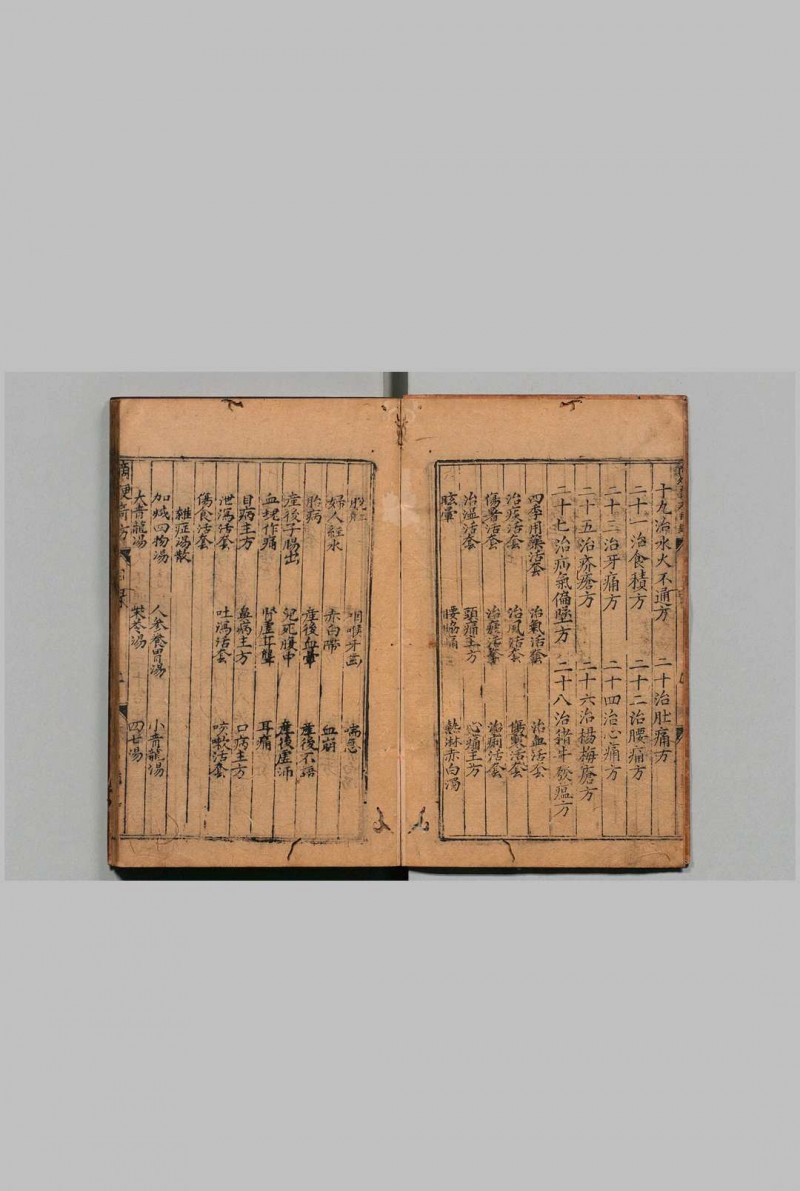 十九治水火不通方 二十治肚痛方
二十一治食積方 二十二治腰痛方
二十三治牙痛方 二十四治心痛方
二十五治疥瘡方 二十六治楊梅瘡方
二十七治病氣傷 方 二十八治豬羊發瘟方
四季用藥活套 治氣活套 治血活套
治痰活套 治風活套 傷寒活套
傷暑活套 治痰活套 治痢活套
治濕活套 頭痛主方 心痛主方
眩暈 腰脇痛 熱淋赤白濁
脫肛 咽喉牙齒 喘急
婦人經水 赤白帶 血崩
胎病 產後血暈 產後不語
產後子腸出 兒死腹中 產後虛
血塊作痛 腎虛耳聾 耳痛
目病主方 鼻病主方 口病主方
泄瀉活套 吐瀉活套 咳嗽活套
傷食活套
雜症湯散
加減四物湯 人參養胃湯 小青龍湯
大青龍湯 柴苓湯 四苓湯